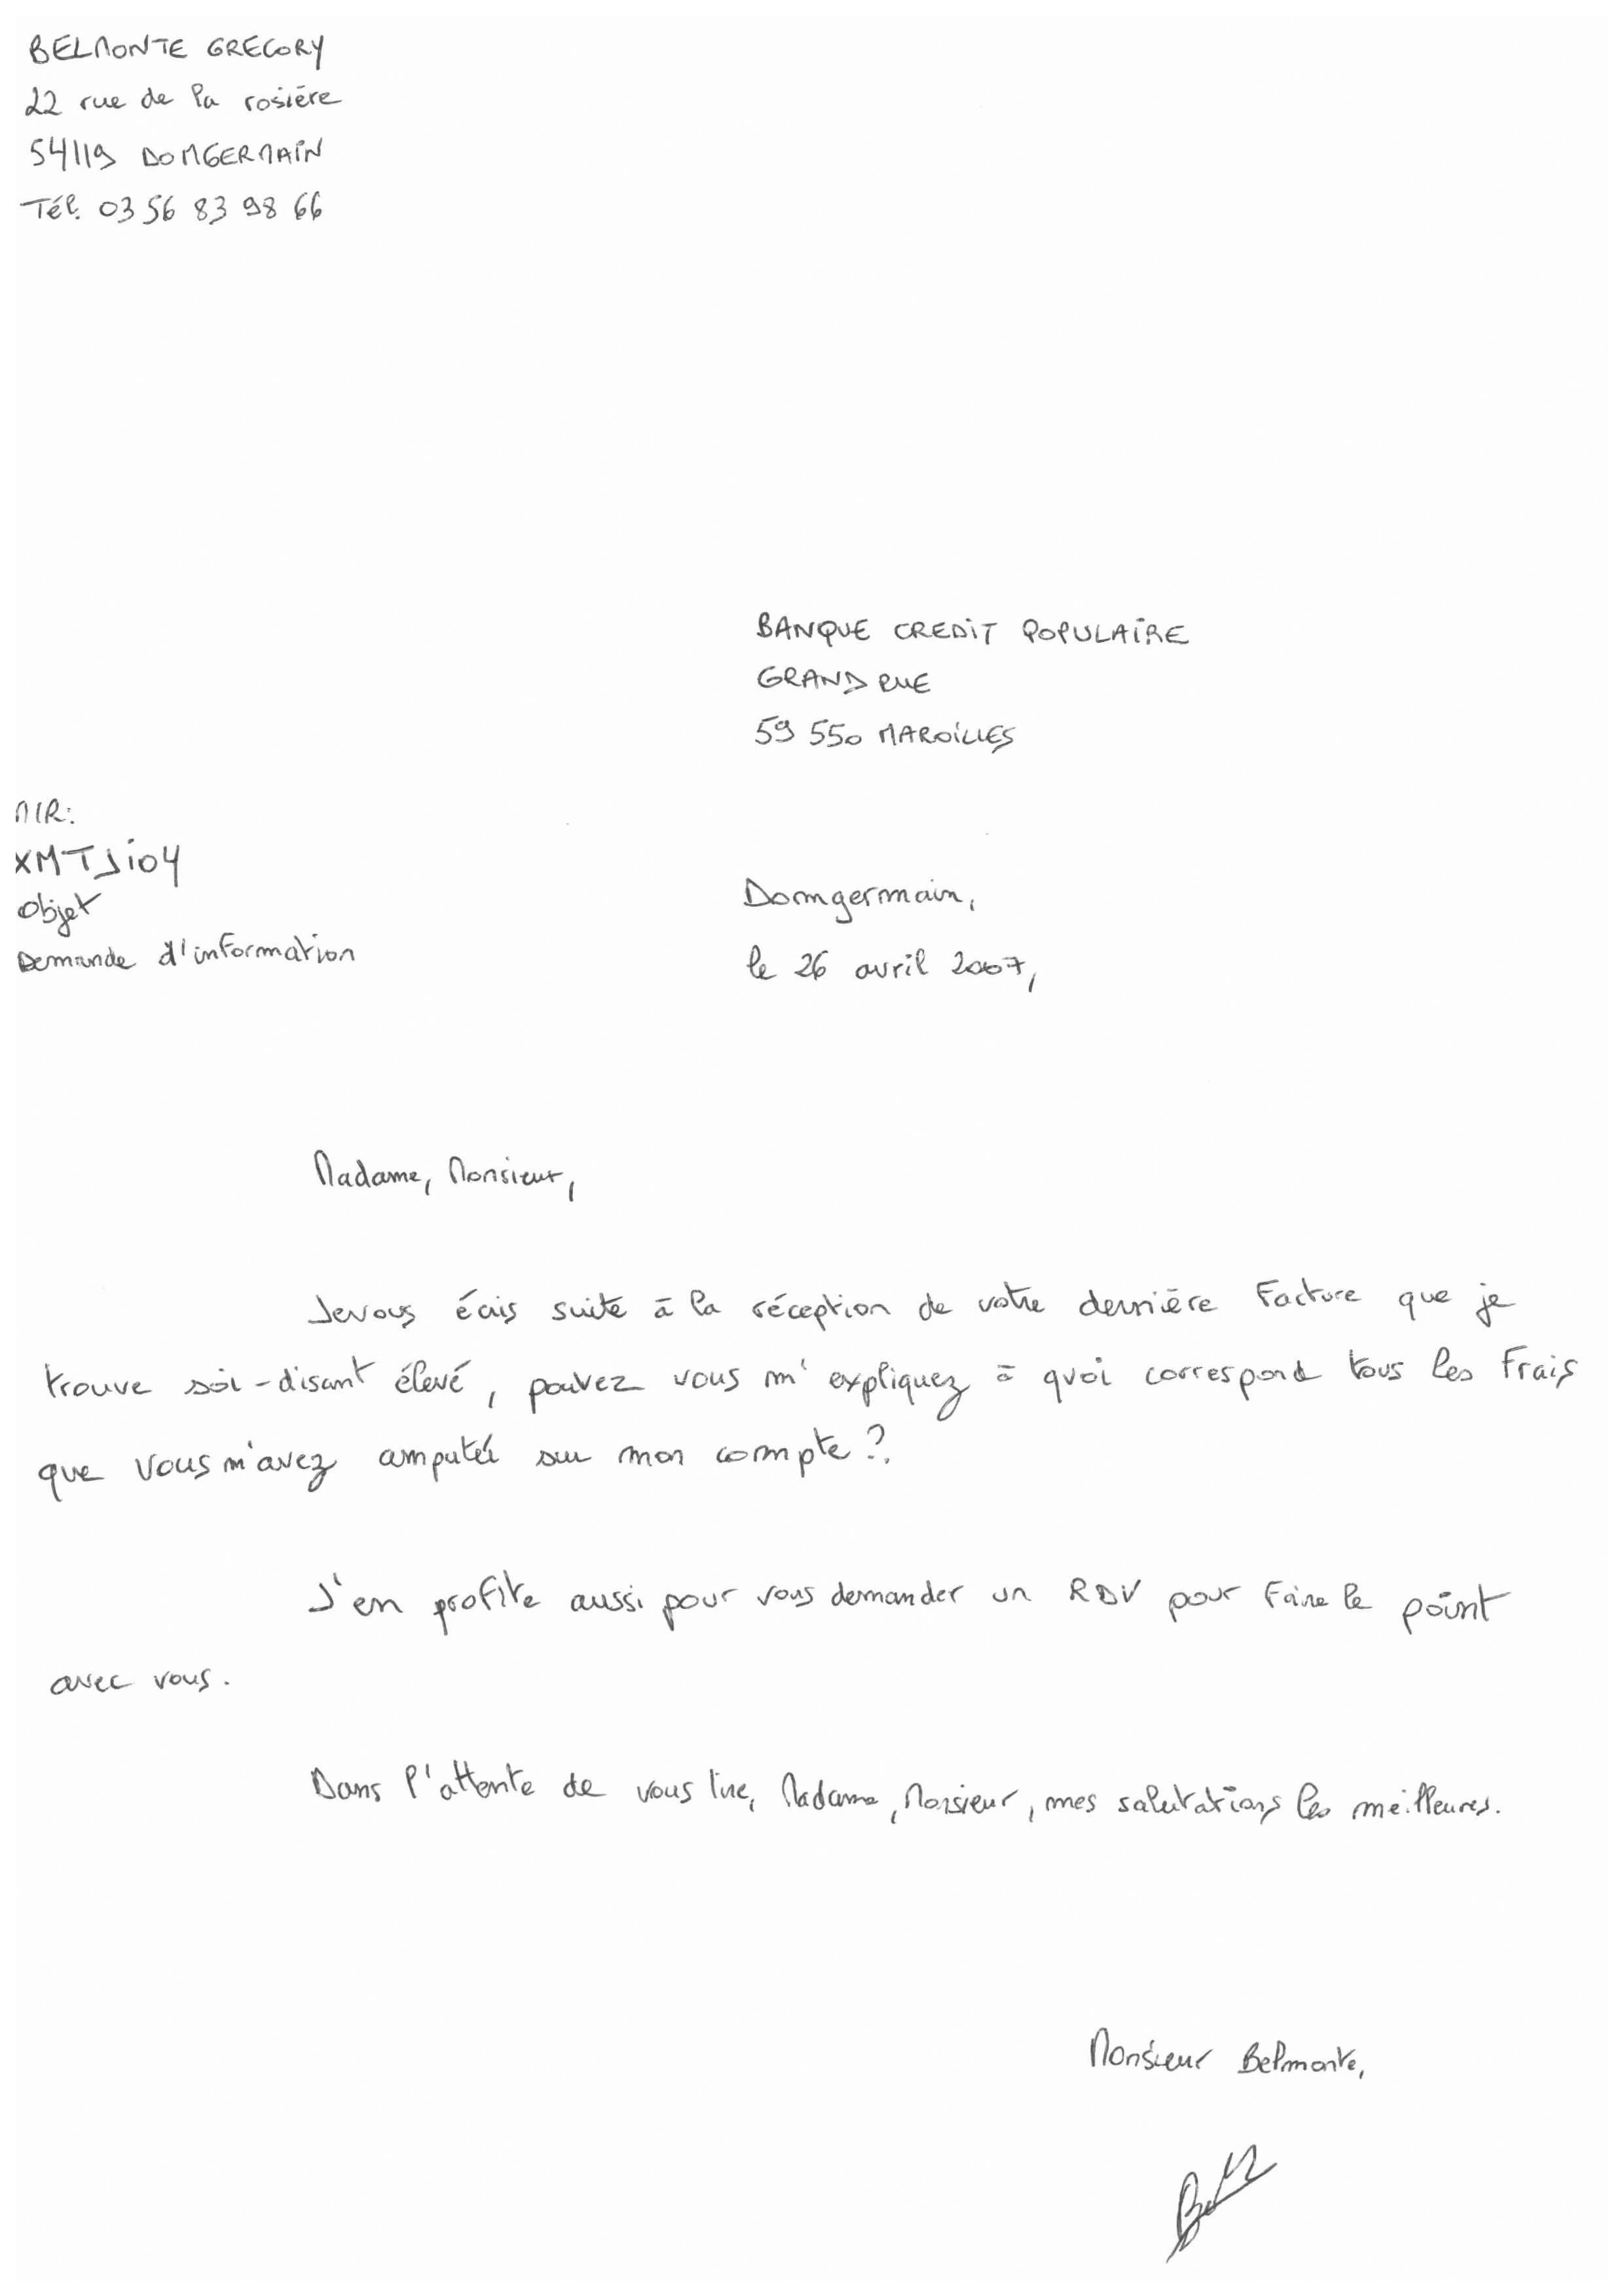 BELMONTE GREGORY
22 rue de la rosière
54119 DOMGERMAIN
Tél. 03 56 83 98 66
BANQUE CREDIT POPULAIRE
GRAND RUE
59 550 MAROILLES
MR:
XMTJI04
Objet
Demande d'information
Domgermain,
le 26 avril 2007,
Madame, Monsieur,
Je vous écris suite à la réception de votre dernière Facture que je
trouve soi-disant élevé, pouvez vous m'expliquez à quoi correspond tous les Frais
que vous m'avez amputés sur mon compte?
J'en profite aussi pour vous demander un RDV pour Faire le point
avec vous.
Dans l'attente de vous lire, Madame, Monsieur, mes salutations les meilleures.
Monsieur Belmonte,